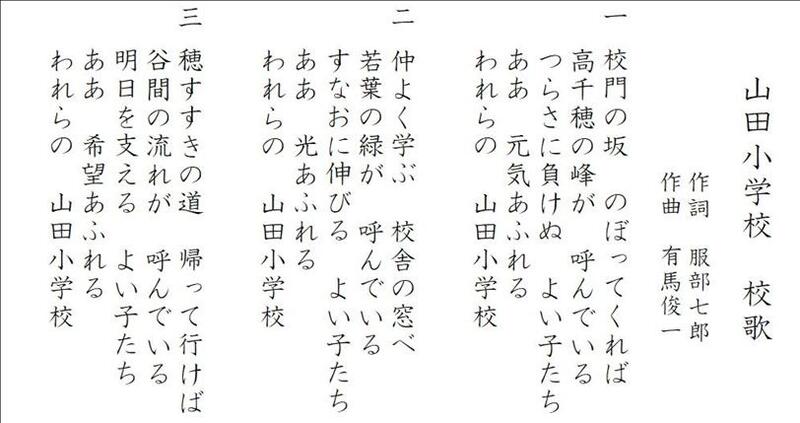 山田小学校　校歌
作詞　服部七郎
作曲　有馬俊一
一　校門の坂　のぼってくれば
高千穂の峰が　呼んでいる
つらさに負けぬ　よい子たち
ああ　元気あふれる
われらの　山田小学校
二　仲よく学ぶ　校舎の窓べ
若葉の緑が　呼んでいる
すなおに伸びる　よい子たち
ああ　光あふれる
われらの　山田小学校
三　穂すすきの道　帰って行けば
谷間の流れが　呼んでいる
明日を支える　よい子たち
ああ　希望あふれる
われらの　山田小学校